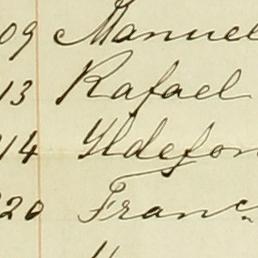 09 Manuel
13 Rafael
14 Yldefon
220 Franc.